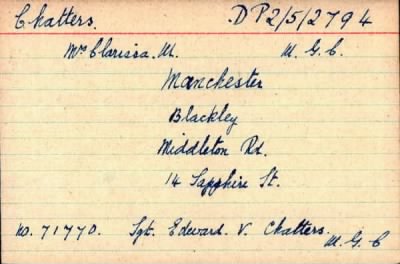 Chatters. DP2/5/2794
Mrs Clarissa. M. M. G. C.
Manchester
Blackley
Middleton Rd.
14 Sapphire St.
No. 71770. Sgt. Edward. V. Chatters.
M. G. C